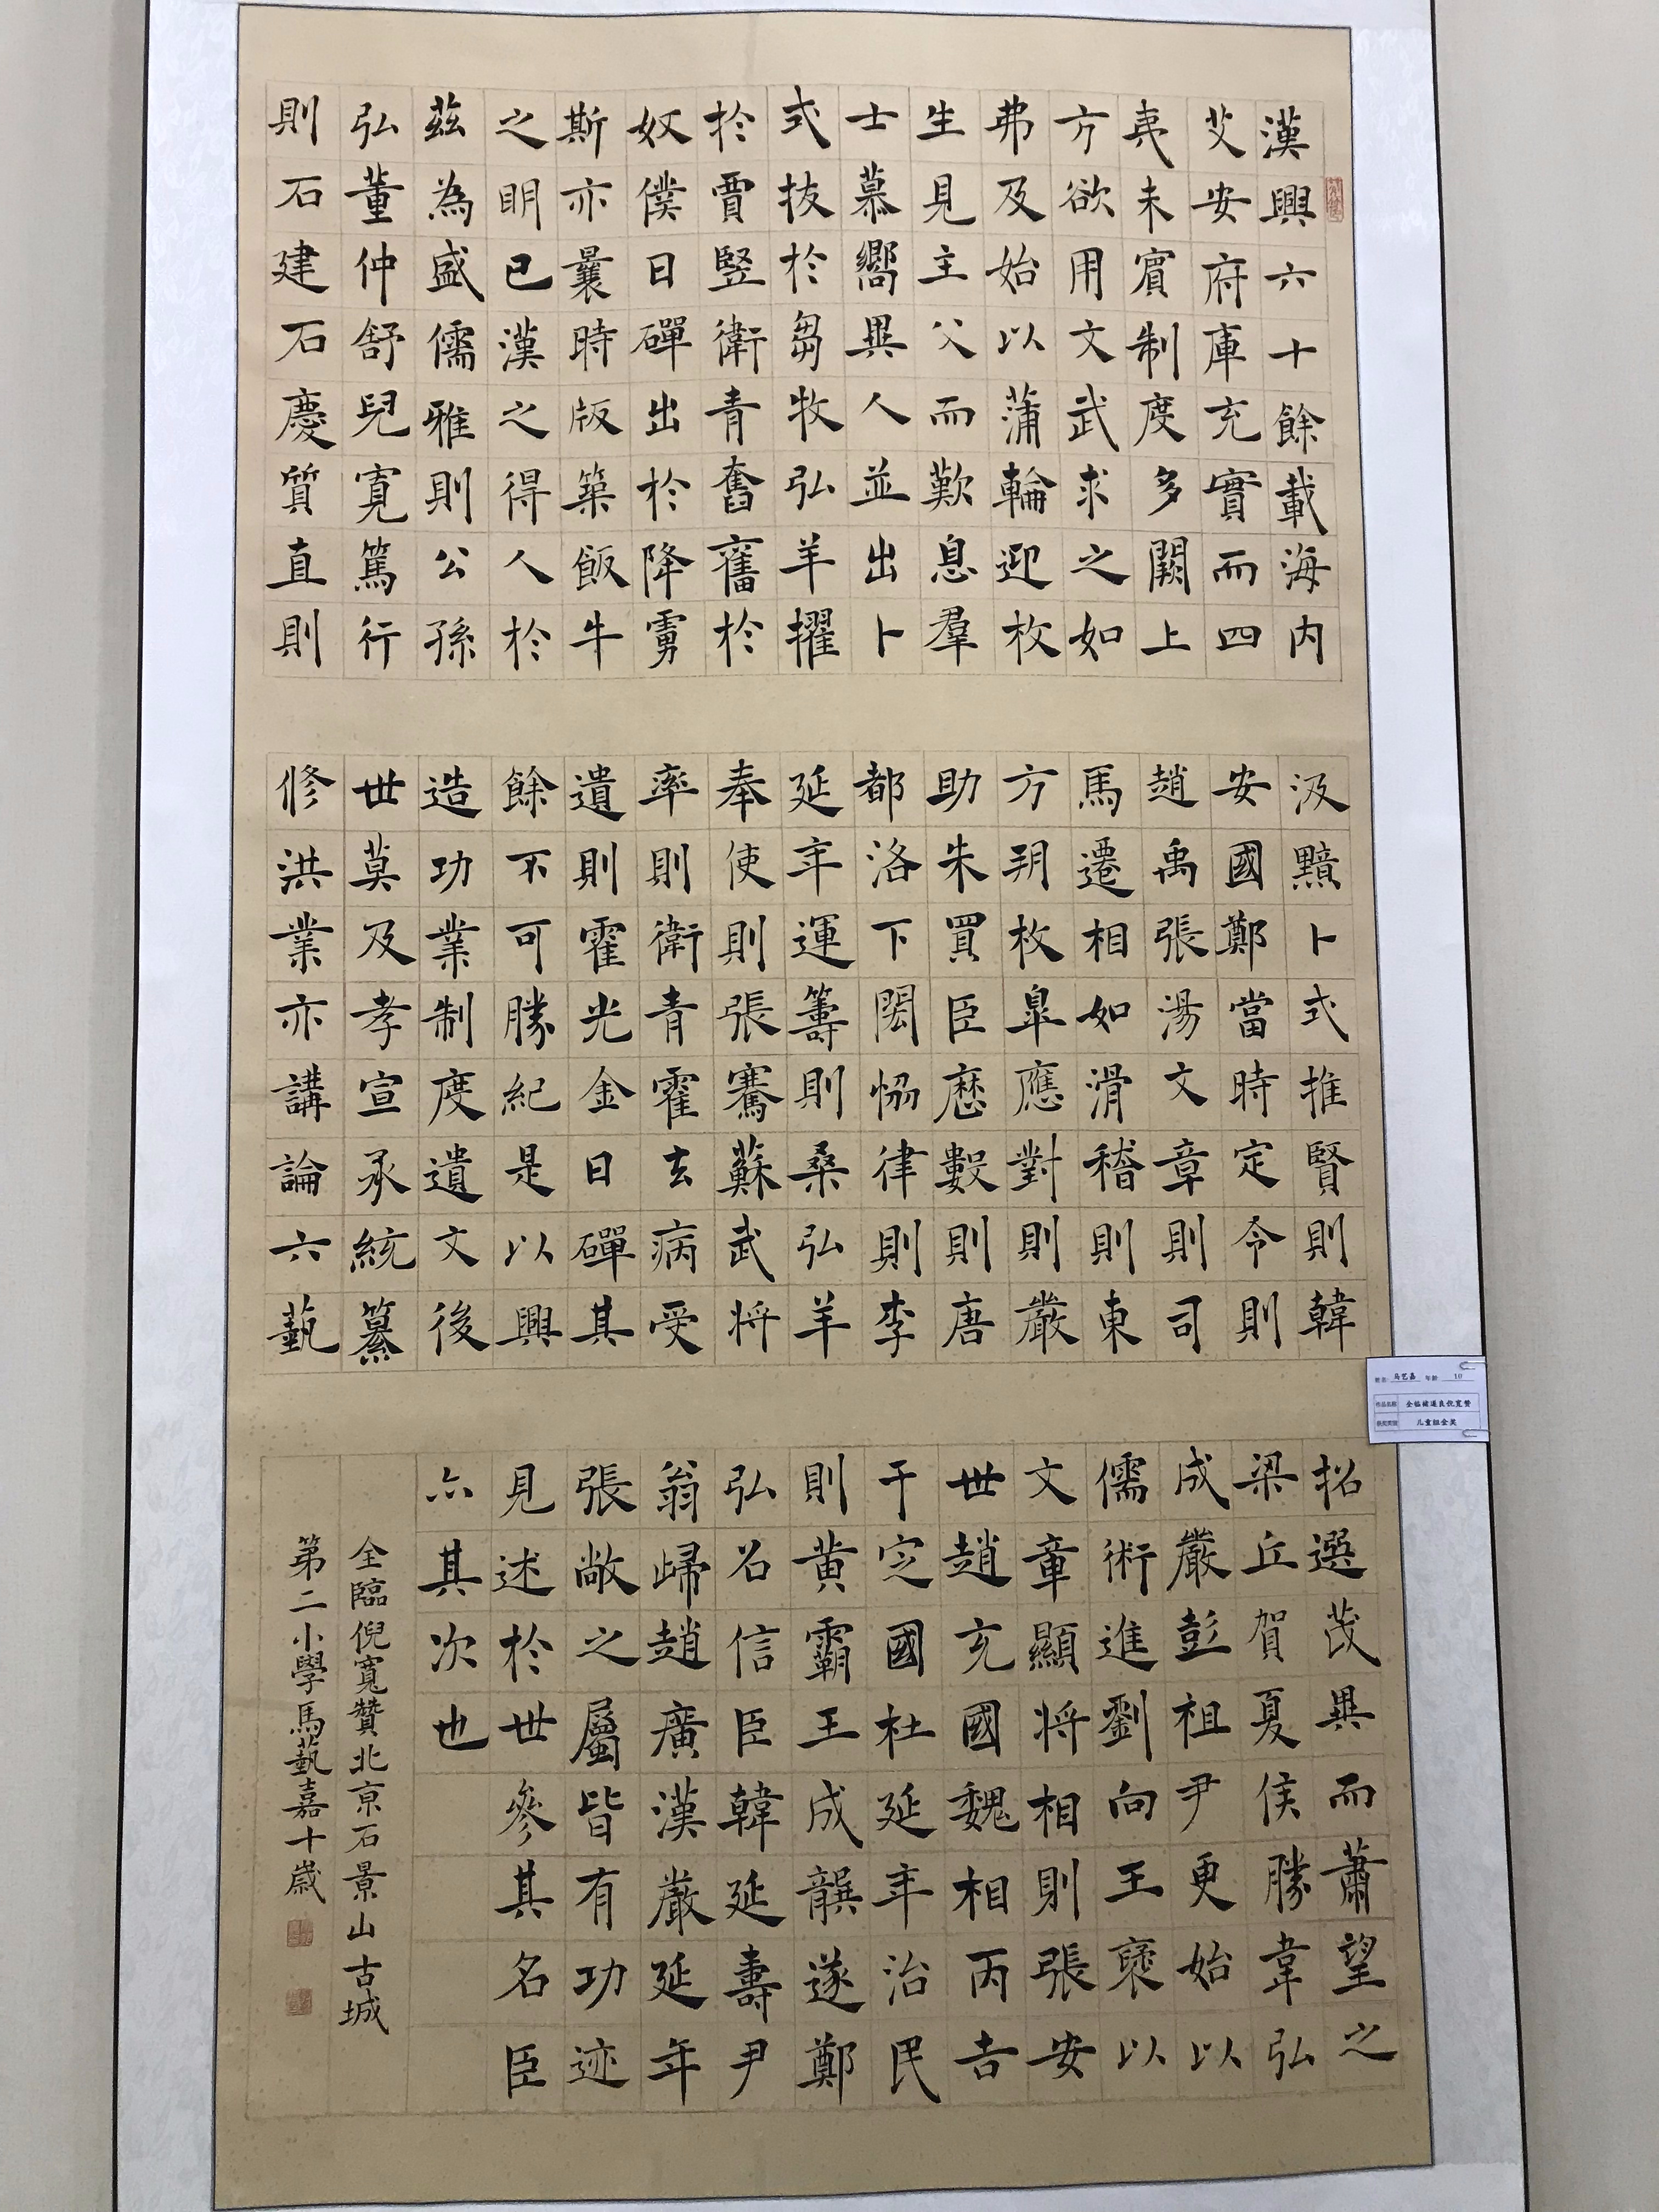 漢興六十餘載海内
艾安府庫充實而四
夷未賓制度多闕上
方欲用文武求之如
弗及始以蒲輪迎枚
生見主父而歎息羣
士慕嚮異人並出卜
式拔於芻牧弘羊擢
於賈豎衛青奮舊於
奴僕日磾出於降虜
斯亦曩時版築飯牛
之明已漢之得人於
茲為盛儒雅則公孫
弘董仲舒兒寬篤行
則石建石慶質直則
汲黯卜式推賢則韓
安國鄭當時定令則
趙禹張湯文章則司
馬遷相如滑稽則東
方朔枚皋應對則嚴
助朱買臣歷數則唐
都洛下閎協律則李
延年運籌則桑弘羊
奉使則張騫蘇武将
率則衛青霍去病受
遺則霍光金日磾其
餘不可勝紀是以興
造功業制度遺文後
世莫及孝宣承統纂
修洪業亦講論六藝
招選茂異而蕭望之
梁丘賀夏侯勝韋弘
成嚴彭祖尹更始以
儒術進劉向王褒以
文章顯将相則張安
世趙充國魏相丙吉
于定國杜延年治民
則黄霸王成龔遂鄭
弘召信臣韓延壽尹
翁歸趙廣漢嚴延年
張敞之屬皆有功迹
見述於世參其名臣
亦其次也
全臨倪寬贊北京石景山古城
第二小學馬藝嘉十歲
姓名 马艺嘉 年龄 10
作品名称 全临褚遂良倪宽赞
获奖奖级 儿童组金奖